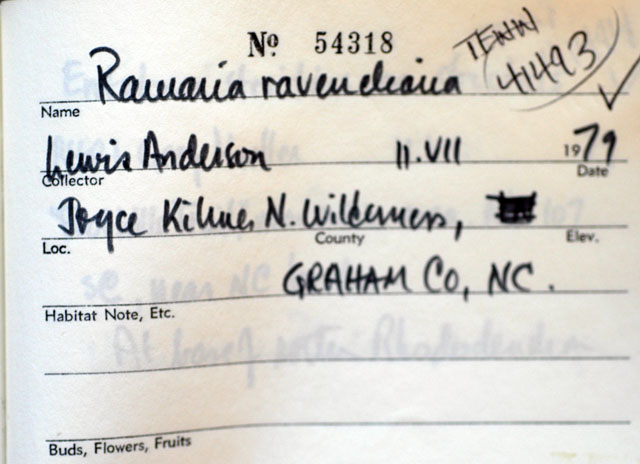 Nº 54318
TENN 41493
Ramaria ravendiana
Name
Lewis Anderson 11.VII 1979
Collector Date
Joyce Kilmer N. Wilderness,
Loc. County Elev.
GRAHAM Co, NC.
Habitat Note, Etc.
At base of Rhododendron
Buds, Flowers, Fruits